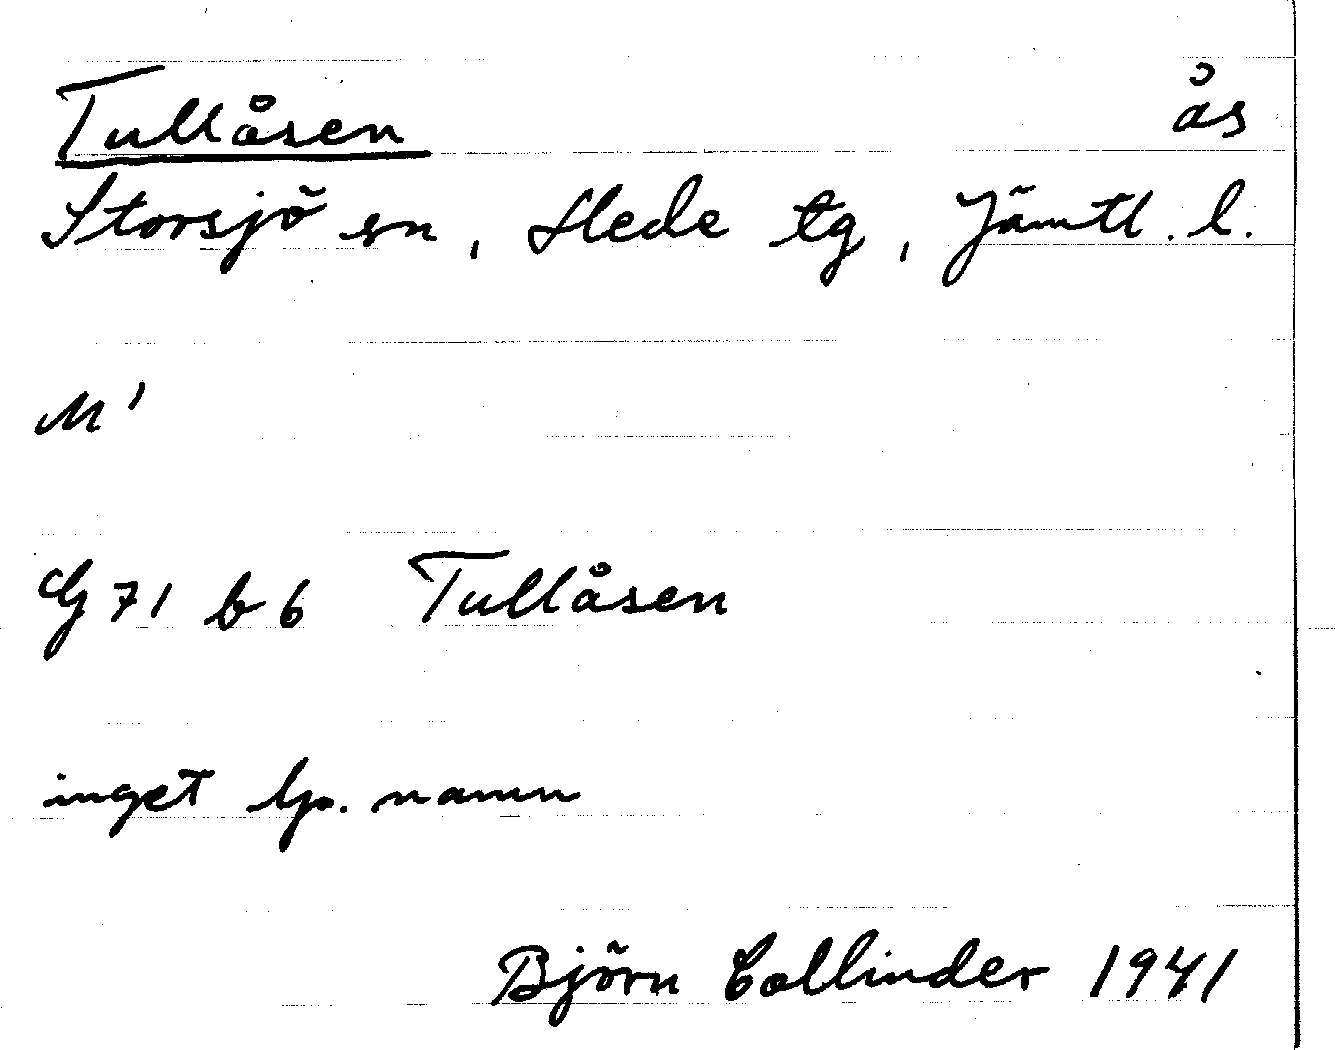 Tullåsen ås
Storsjö sn, Hede tg, Jämtl. l.
M'
G 71 b 6 Tullåsen
inget lp. namn
Björn Collinder 1941